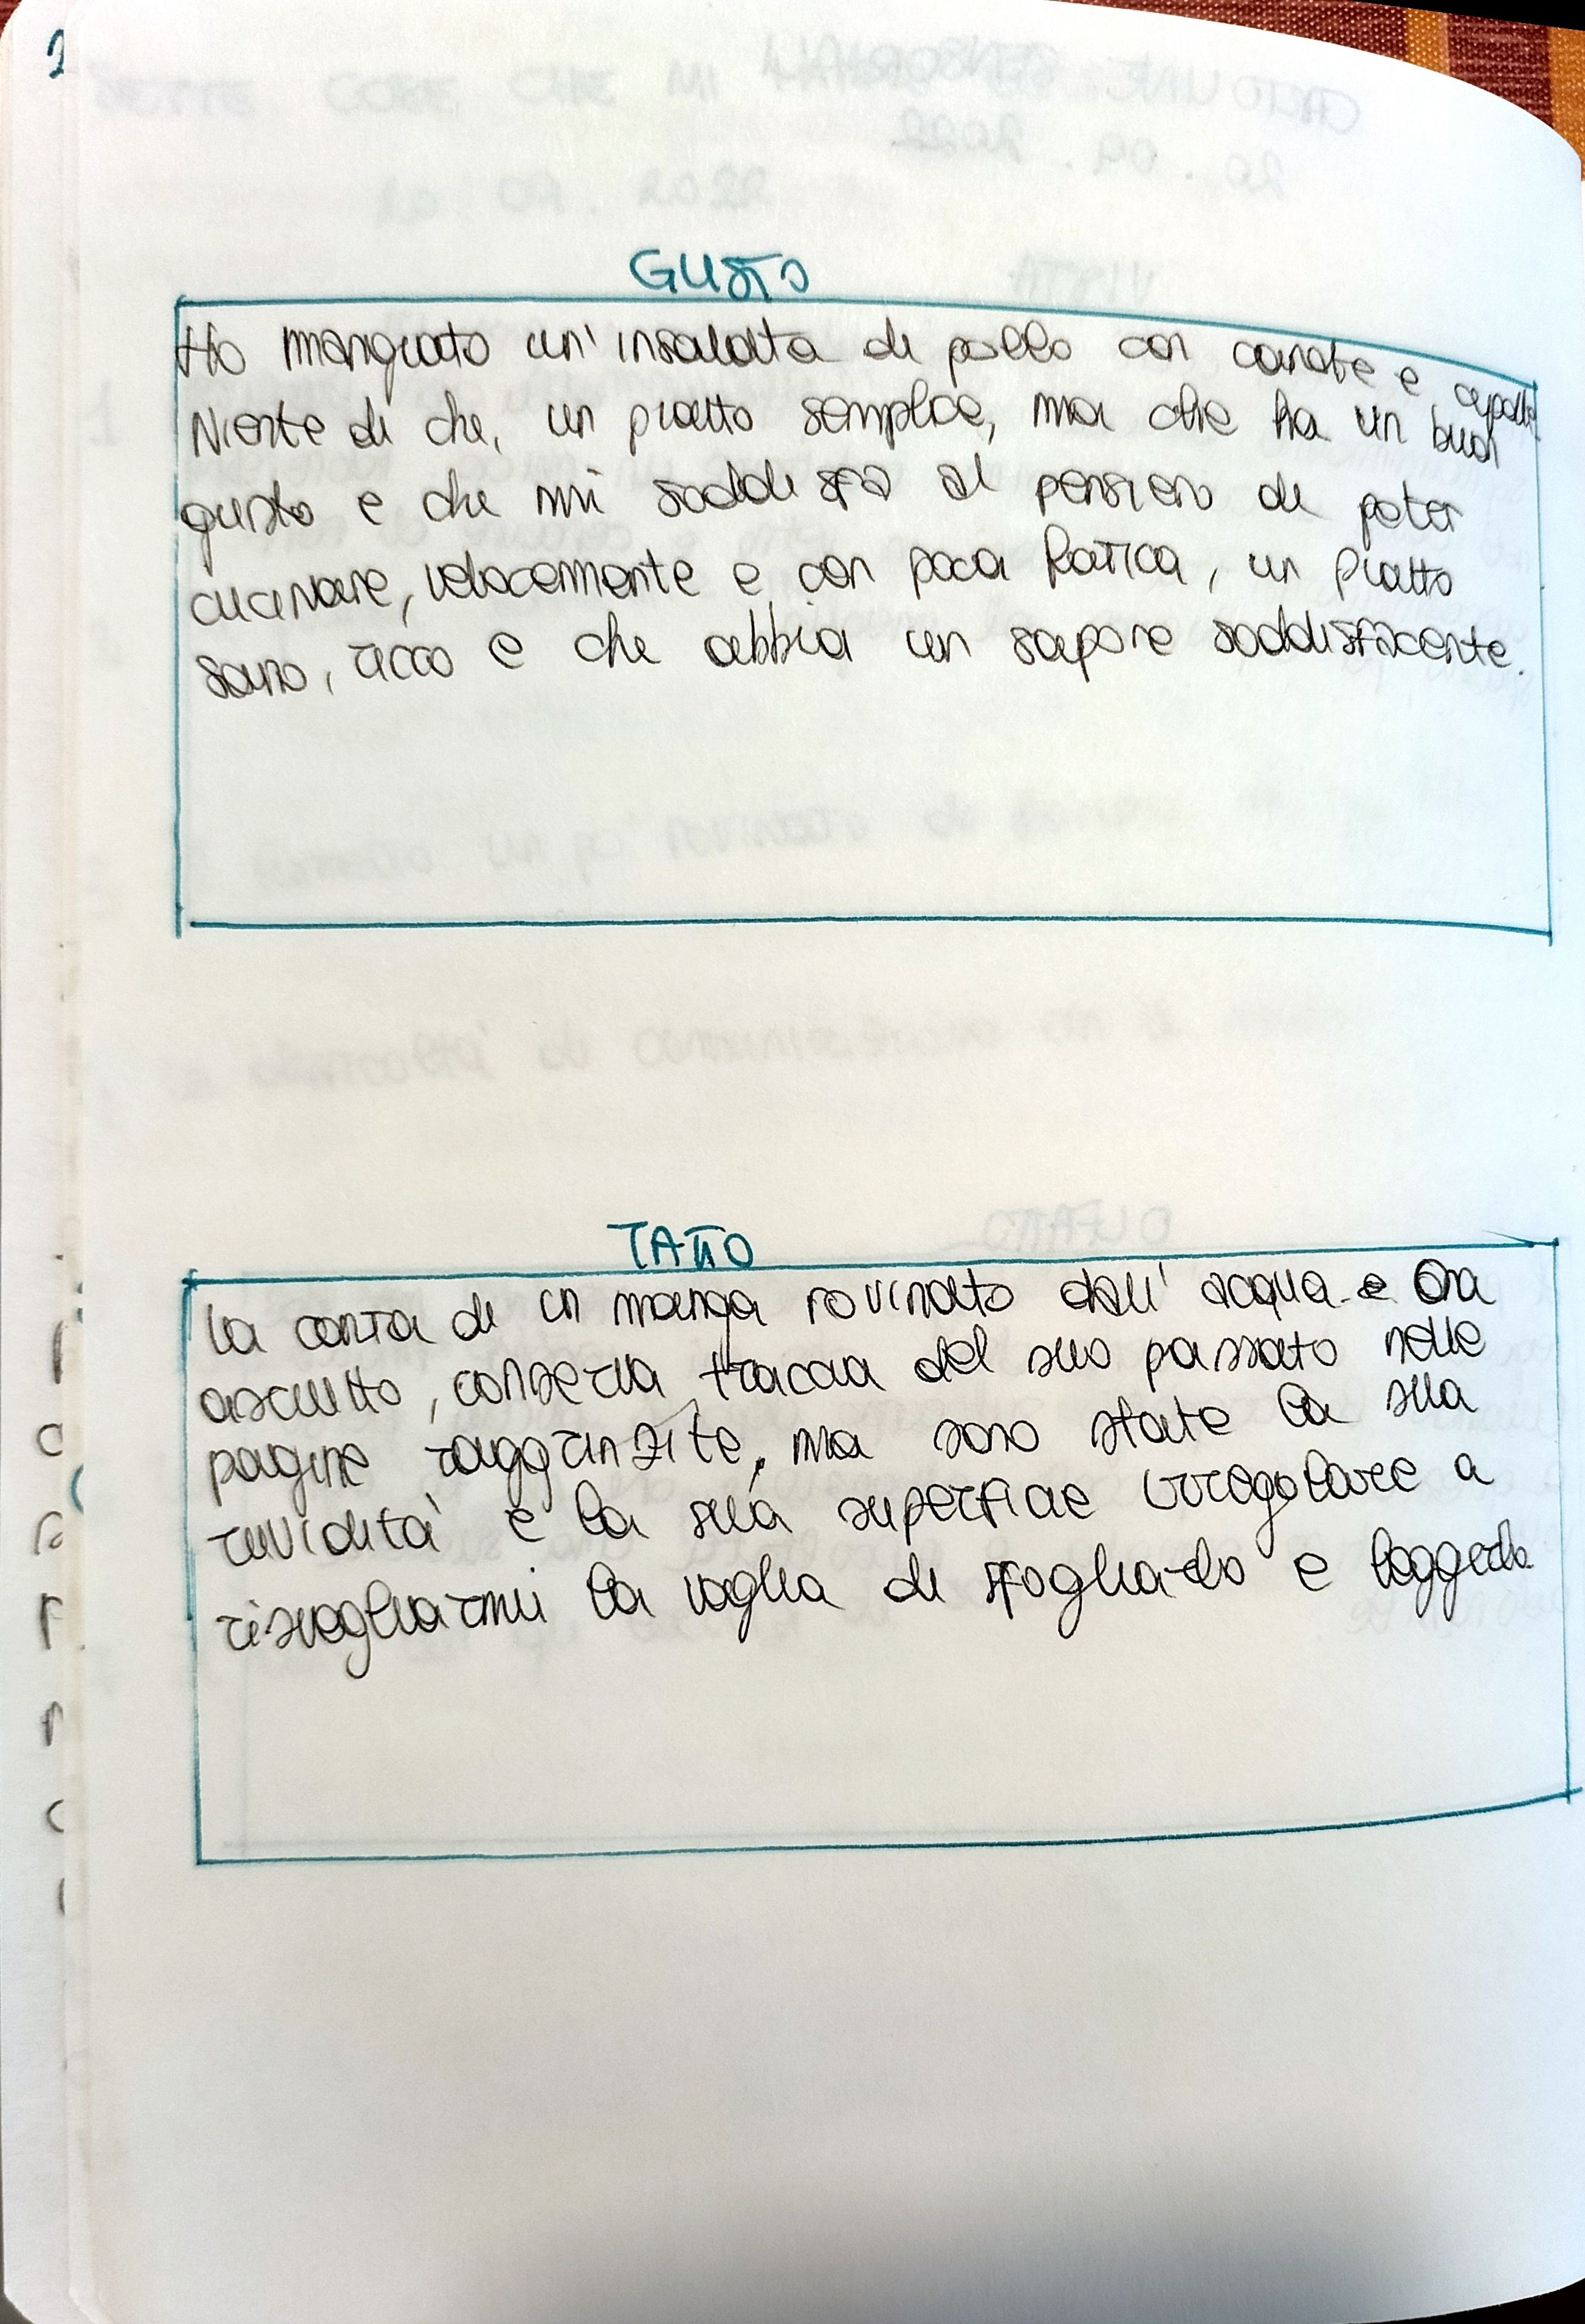 GUSTO
Ho mangiato un'insalata di pollo con carote e cipolle
Niente di che, un piatto semplice, ma che ha un buon
gusto e che mi soddisfa al pensiero di poter
cucinare, velocemente e con poca fatica, un piatto
sano, ricco e che abbia un sapore soddisfacente.
TATTO
La carta di un manga rovinato dall'acqua e ora
asciutto, conserva traccia del suo passato nelle
pagine raggrinzite, ma sono state la sua
ruvidità e la sua superficie irregolare a
risvegliarmi la voglia di sfogliarlo e leggerlo